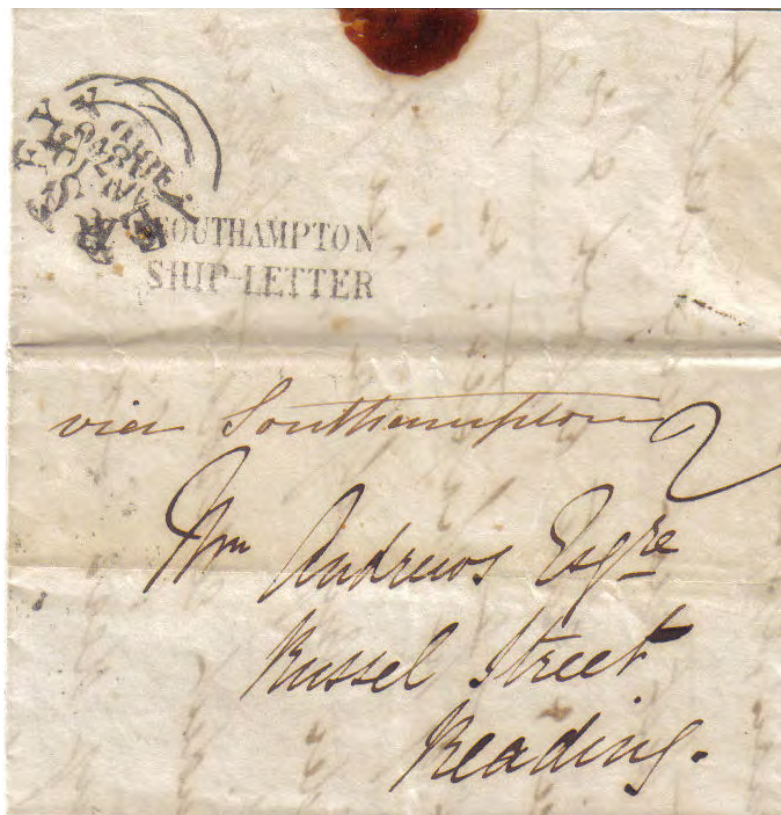 JERSEY
SOUTHAMPTON
SHIP-LETTER
via Southampton
2
Wm Andrews Esqre
Russel Street
Reading.